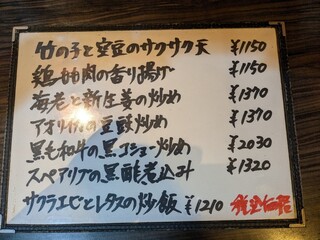 竹の子と空豆のサクサク天 ¥1150
鶏もも肉の香り揚げ ¥1150
海老と新生姜の炒め ¥1370
アオリイカの豆豉炒め ¥1370
黒毛和牛の黒コショー炒め ¥2030
スペアリブの黒酢煮込み ¥1320
サクラエビとレタスの炒飯 ¥1210